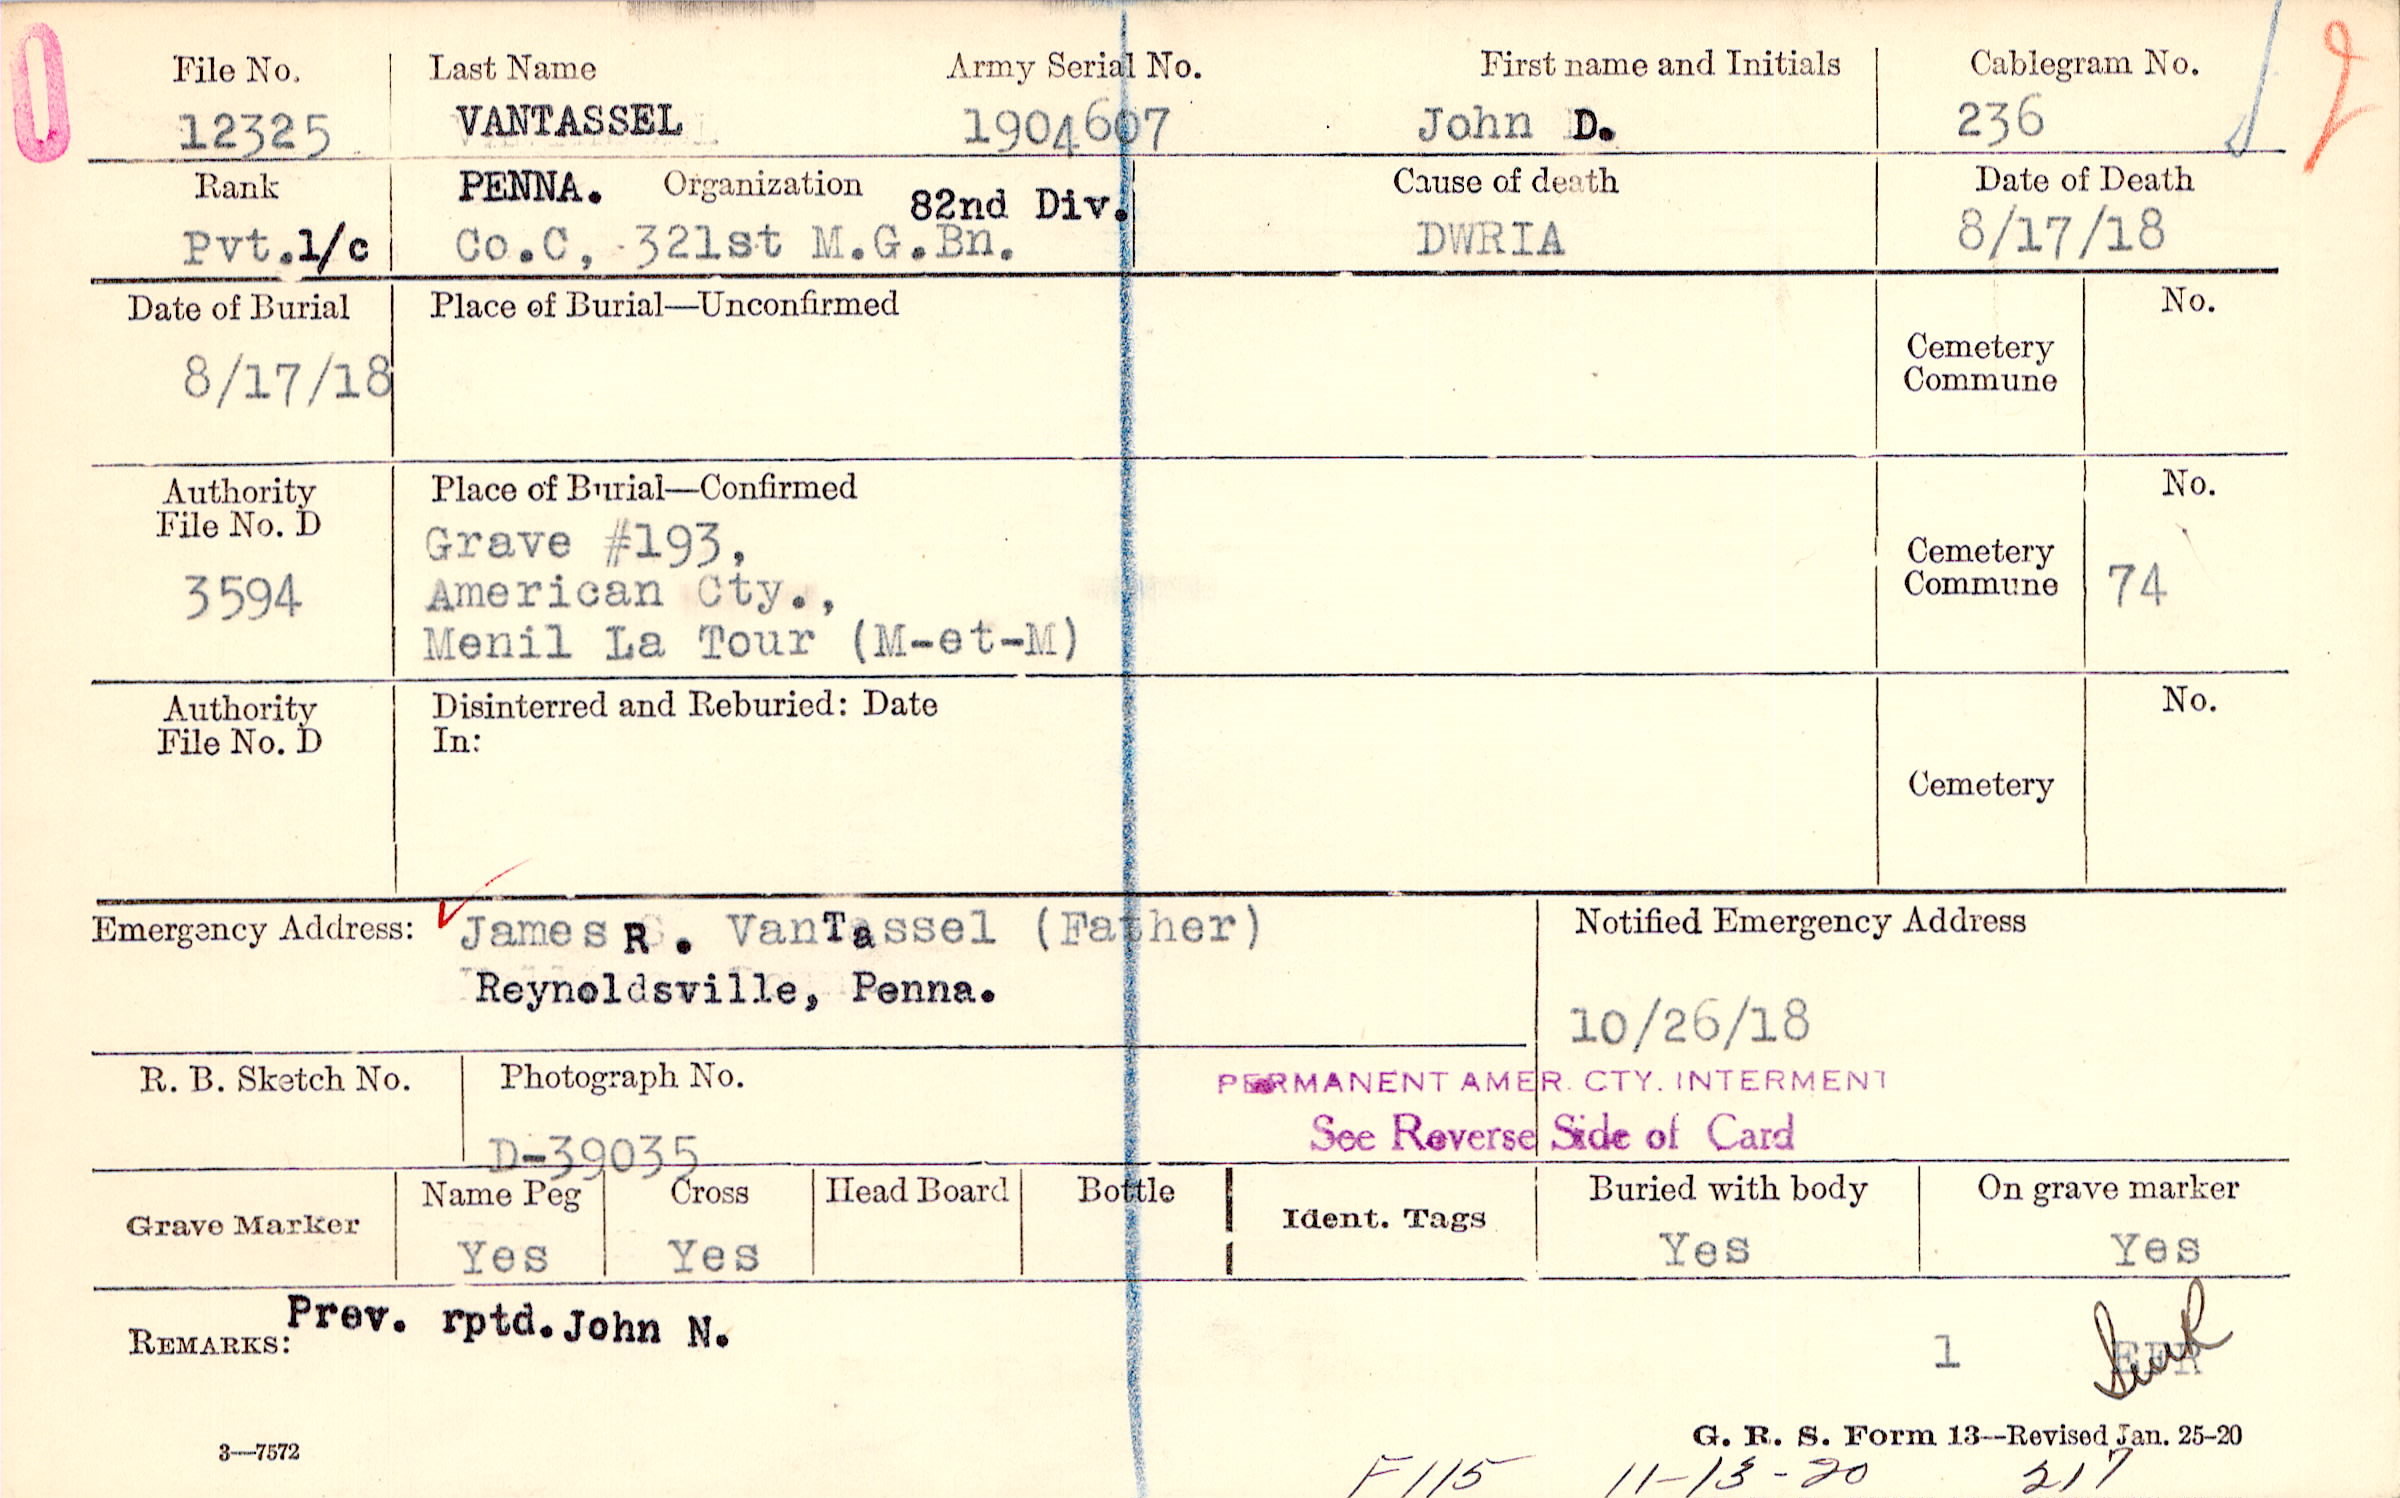 File No. Last Name Army Serial No. First name and Initials Cablegram No.
12325 VANTASSEL 1904607 John D. 236
Rank PENNA. Organization Cause of death Date of Death
82nd Div.
Pvt.1/c Co.C, 321st M.G.Bn. DWRIA 8/17/18
Date of Burial Place of Burial—Unconfirmed No.
8/17/18 Cemetery
Commune
Authority Place of Burial—Confirmed No.
File No. D
Grave #193,
3594 American Cty., Cemetery
Commune 74
Menil La Tour (M-et-M)
Authority Disinterred and Reburied: Date No.
File No. D In:
Cemetery
Emergency Address: James R. VanTassel (Father) Notified Emergency Address
Reynoldsville, Penna.
10/26/18
R. B. Sketch No. Photograph No. PERMANENT AMER. CTY. INTERMENT
D-39035 See Reverse Side of Card
Grave Marker Name Peg Cross Head Board Bottle Ident. Tags Buried with body On grave marker
Yes Yes Yes Yes
REMARKS: Prev. rptd. John N.
1
3—7572 G. R. S. Form 13—Revised Jan. 25-20
F115 11-13-20 217